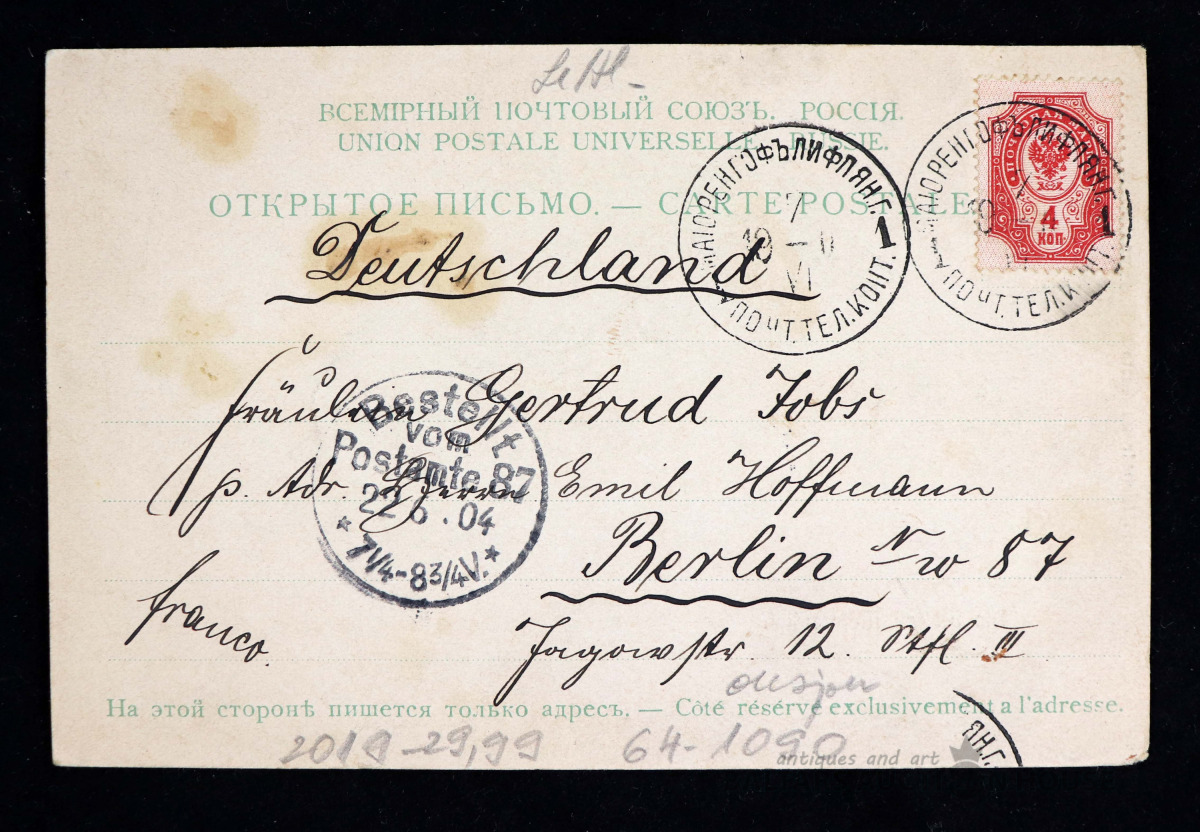 ВСЕМІРНЫЙ ПОЧТОВЫЙ СОЮЗЪ. РОССІЯ.
UNION POSTALE UNIVERSELLE. RUSSIE.
ОТКРЫТОЕ ПИСЬМО. — CARTE POSTALE
МАІОРЕНГОФЪ ЛИФЛЯН.Г. 1
7
19 – VI
ПОЧТ. ТЕЛ. КОНТ.
МАІОРЕНГОФЪ ЛИФЛЯН.Г. 1
ПОЧТ. ТЕЛ. К
4
КОП
Deutschland
Fräulein Gertrud Jobs
p. Adr. Herrn Emil Hoffmann
Berlin NW 87
Jagowstr. 12. Stfl. III
franco.
Bestellt
vom
Postamte 87
22 6. 04
* 7 1/4-8 3/4 V. *
На этой сторонѣ пишется только адресъ. — Côté réservé exclusivement a l'adresse.
2019 -29,99 64-1090
ЯН.Г.
antiques and art